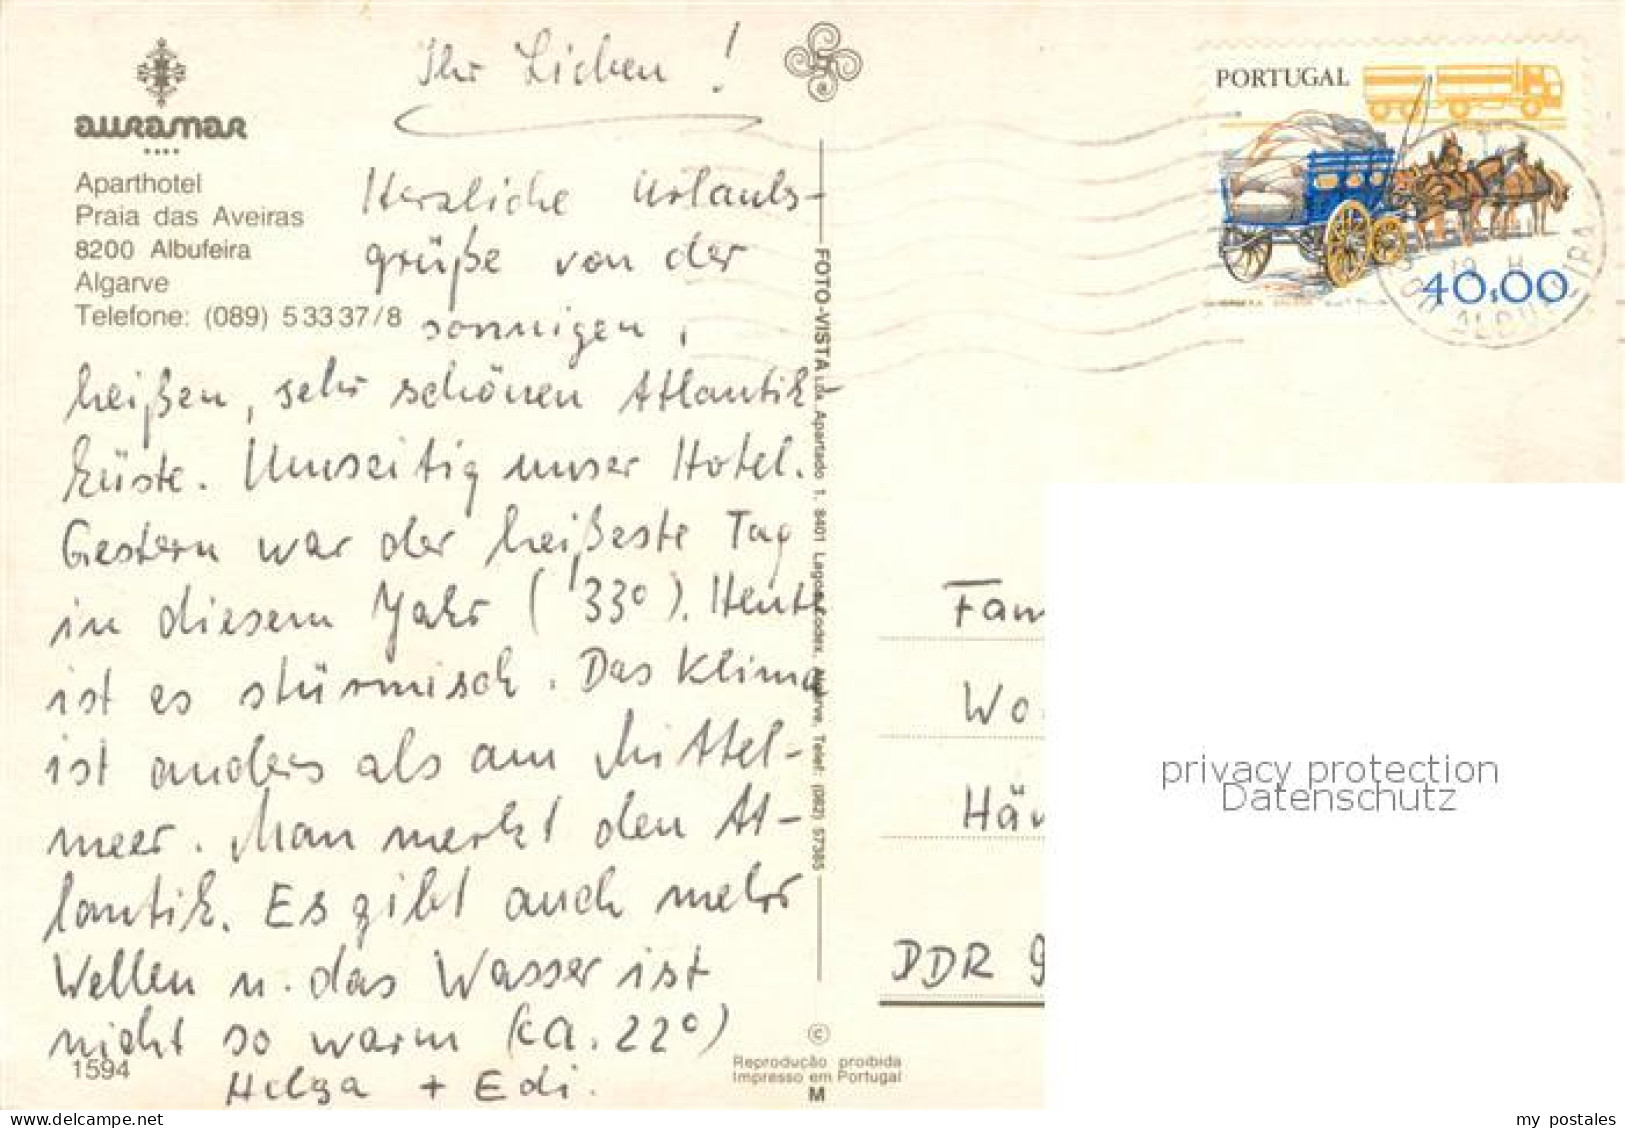 Ihr Lieben !
auramar
Aparthotel
Praia das Aveiras
8200 Albufeira
Algarve
Telefone: (089) 53337/8
Herzliche Urlaubs-
grüße von der
sonnigen,
heißen, sehr schönen Atlantik-
küste. Umseitig unser Hotel.
Gestern war der heißeste Tag
in diesem Jahr (33°). Heute
ist es stürmisch. Das Klima
ist anders als am Mittel-
meer. Man merkt den At-
lantik. Es gibt auch mehr
Wellen u. das Wasser ist
nicht so warm (ca. 22°)
Helga + Edi.
1594
FOTO-VISTA LDA. Apartado 1. 8401 Lagoa Codex. Algarve. Telef: (082) 57365
©
Reprodução proibida
Impresso em Portugal
M
PORTUGAL
40,00
Fam
Wo
Hän
DDR 9
privacy protection
Datenschutz
delcampe.net
my_postales